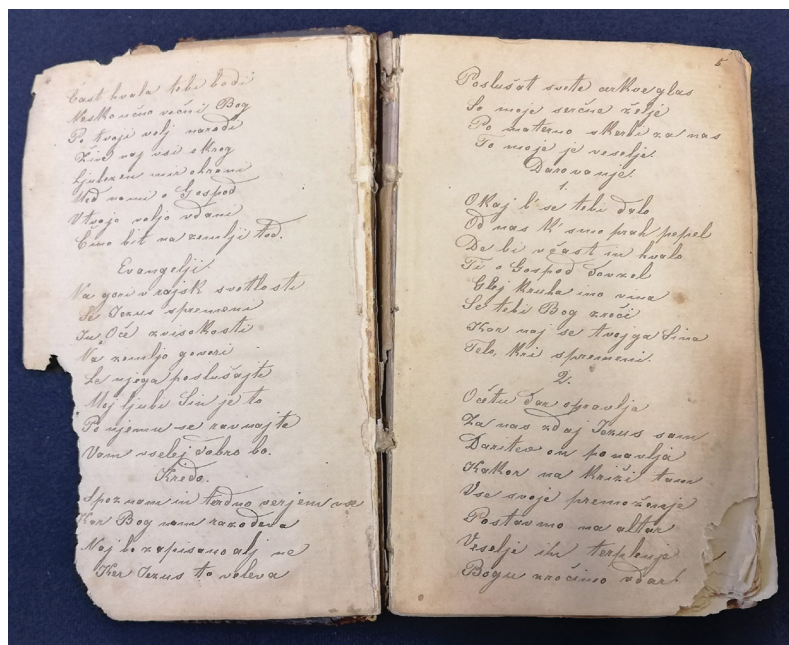 Čast hvala tebi bodi
Neskončno večni Bog
Po tvoji volj narodi
Žive naj vsi okrog
Ljubezen mir ohrani
Med nami o Gospod
V tvojo voljo vdani
Čmo bit na zemlji tod.
Evangelji.
Na gori v rajsk svetlosti
Se Jezus spremeni
In Oče z visokosti
Na zemljo govori
Le njega poslušajte
Moj ljubi Sin je to
Po njemu se ravnajte
Vam vselej dobro bo.
Kredo.
Spoznam in terdno verjem vse
Kar Bog nam razodeva
Naj bo zapisano alj ne
Ker Jezus to veleva
5
Poslušat svete cirkve glas
So moje serčne želje
Po materno skerbi za nas
To moje je veselje.
Darovanje.
1.
O kaj b' se tebi dalo
Od nas k' smo prah pepel
De bi v čast in hvalo
Ti o Gospod dovzel
Glej kruha ino vina
Se tebi Bog zroči
Kar naj se tvojga Sina
Telo, kri spremeni.
2.
Očetu dar opravlja
Za nas zdaj Jezus sam
Daritev on ponavlja
Kakor na križi tam
Vse svoje premoženje
Postavmo na altar
Veselje in terplenje
Bogu zročimo v dar.